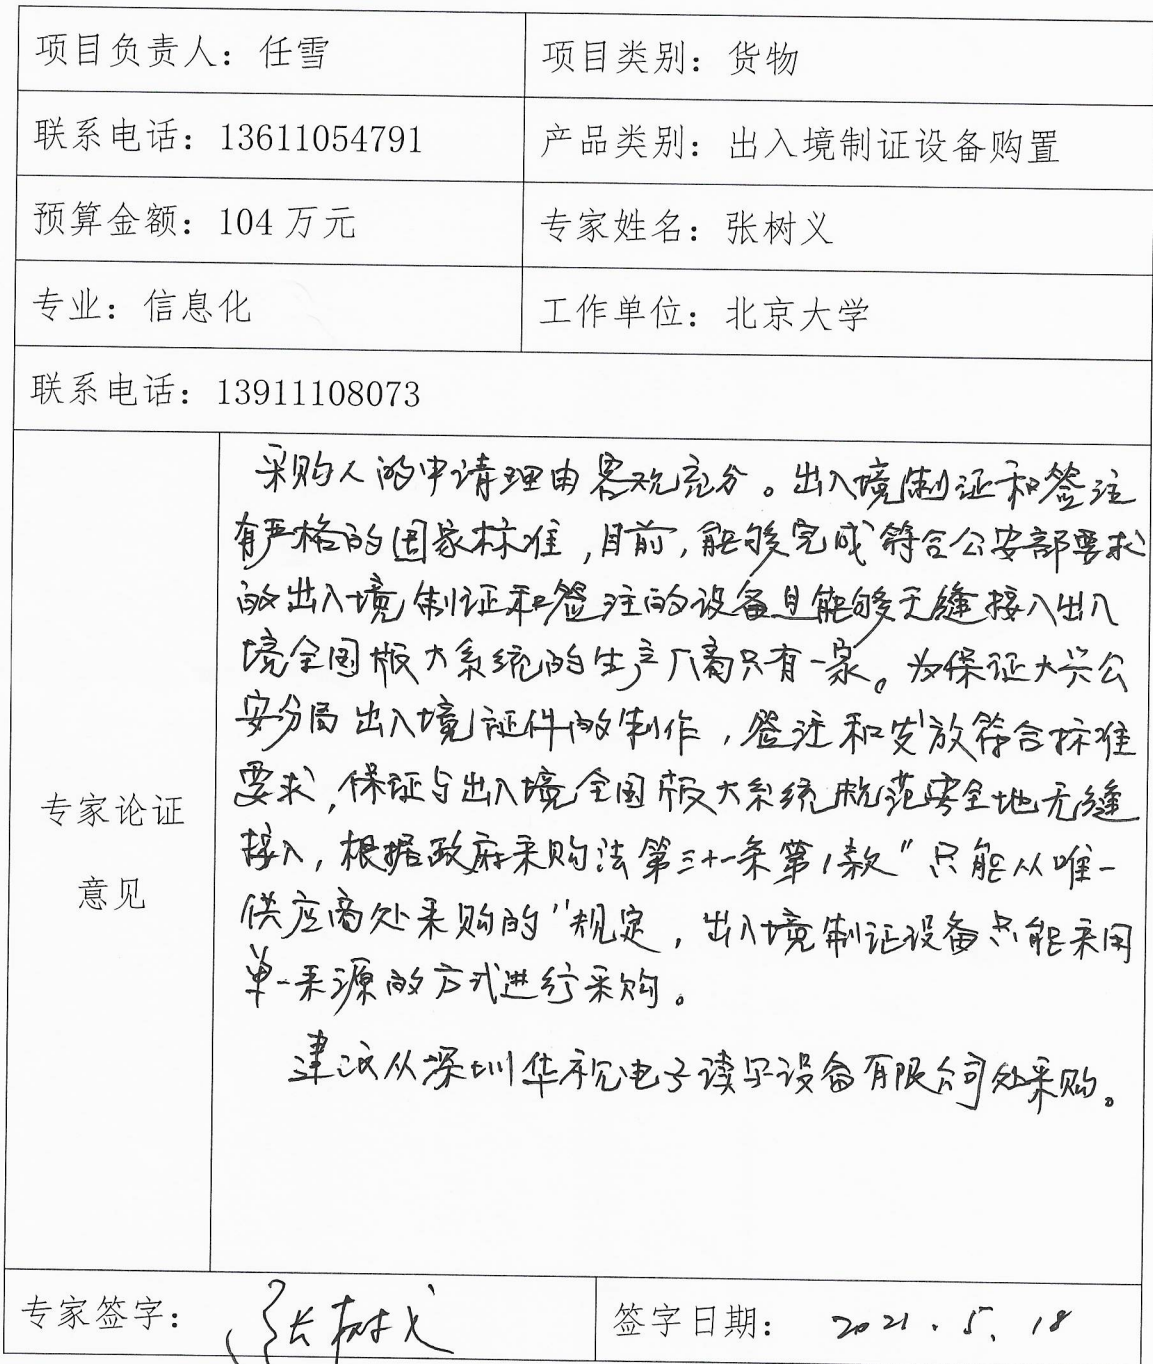 项目负责人：任雪 项目类别：货物
联系电话：13611054791 产品类别：出入境制证设备购置
预算金额：104 万元 专家姓名：张树义
专业：信息化 工作单位：北京大学
联系电话：13911108073
专家论证
意见
采购人的申请理由客观充分。出入境制证和签注
有严格的国家标准,目前,能够完成符合公安部要求
的出入境制证和签注的设备且能够无缝接入出入
境全国版大系统的生产厂商只有一家。为保证大兴公
安分局出入境证件的制作,签注和发放符合标准
要求,保证与出入境全国版大系统规范安全地无缝
接入,根据政府采购法第三十一条第1款"只能从唯一
供应商处采购的"规定,出入境制证设备只能采用
单一来源的方式进行采购。
建议从深圳华视电子读写设备有限公司处采购。
专家签字：张树义 签字日期：2021.5.18